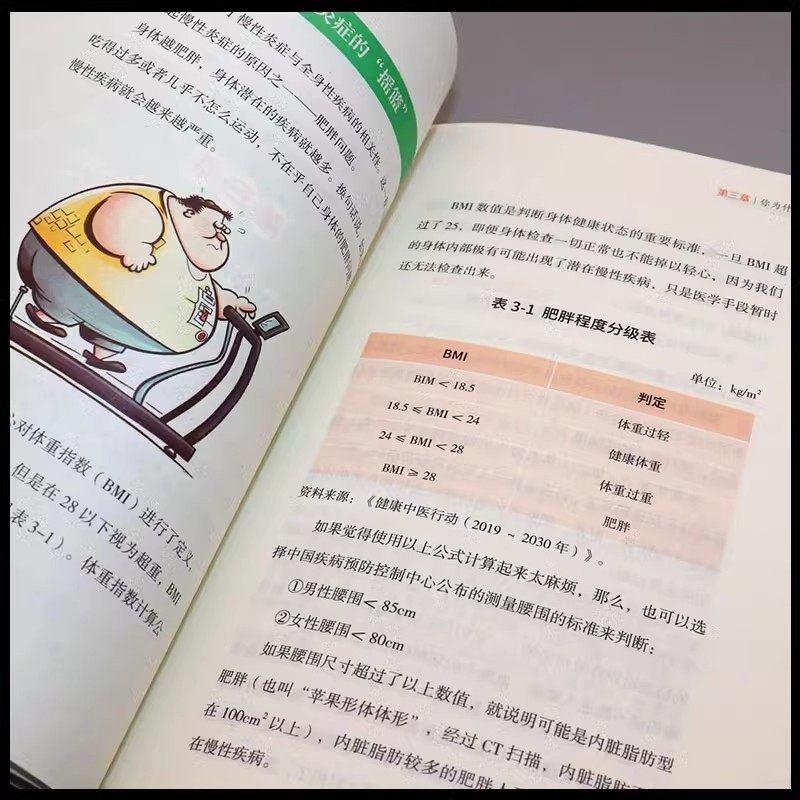 炎症的“摇篮”
慢性炎症与全身性疾病的相关性
起慢性炎症的原因之一——肥胖问题。
身体越肥胖，身体潜在的疾病就越多。换句话说，
吃得过多或者几乎不怎么运动，不在乎自己身体的肥胖
慢性疾病就会越来越严重。
对体重指数（BMI）进行了定义，
但是在 28 以下视为超重，BMI
表 3-1）。体重指数计算公
第三章 | 你为什
BMI 数值是判断身体健康状态的重要标准，一旦 BMI 超
过了 25，即便身体检查一切正常也不能掉以轻心，因为我们
的身体内部极有可能出现了潜在慢性疾病，只是医学手段暂时
还无法检查出来。
表 3-1 肥胖程度分级表
单位：kg/m²
BMI 判定
BIM < 18.5 体重过轻
18.5 ≤ BMI < 24 健康体重
24 ≤ BMI < 28 体重过重
BMI ≥ 28 肥胖
资料来源：《健康中医行动（2019 ~ 2030 年）》。
如果觉得使用以上公式计算起来太麻烦，那么，也可以选
择中国疾病预防控制中心公布的测量腰围的标准来判断：
①男性腰围< 85cm
②女性腰围< 80cm
如果腰围尺寸超过了以上数值，就说明可能是内脏脂肪型
肥胖（也叫“苹果形体体形”，经过 CT 扫描，内脏脂肪
在100cm²以上），内脏脂肪较多的肥胖
在慢性疾病。